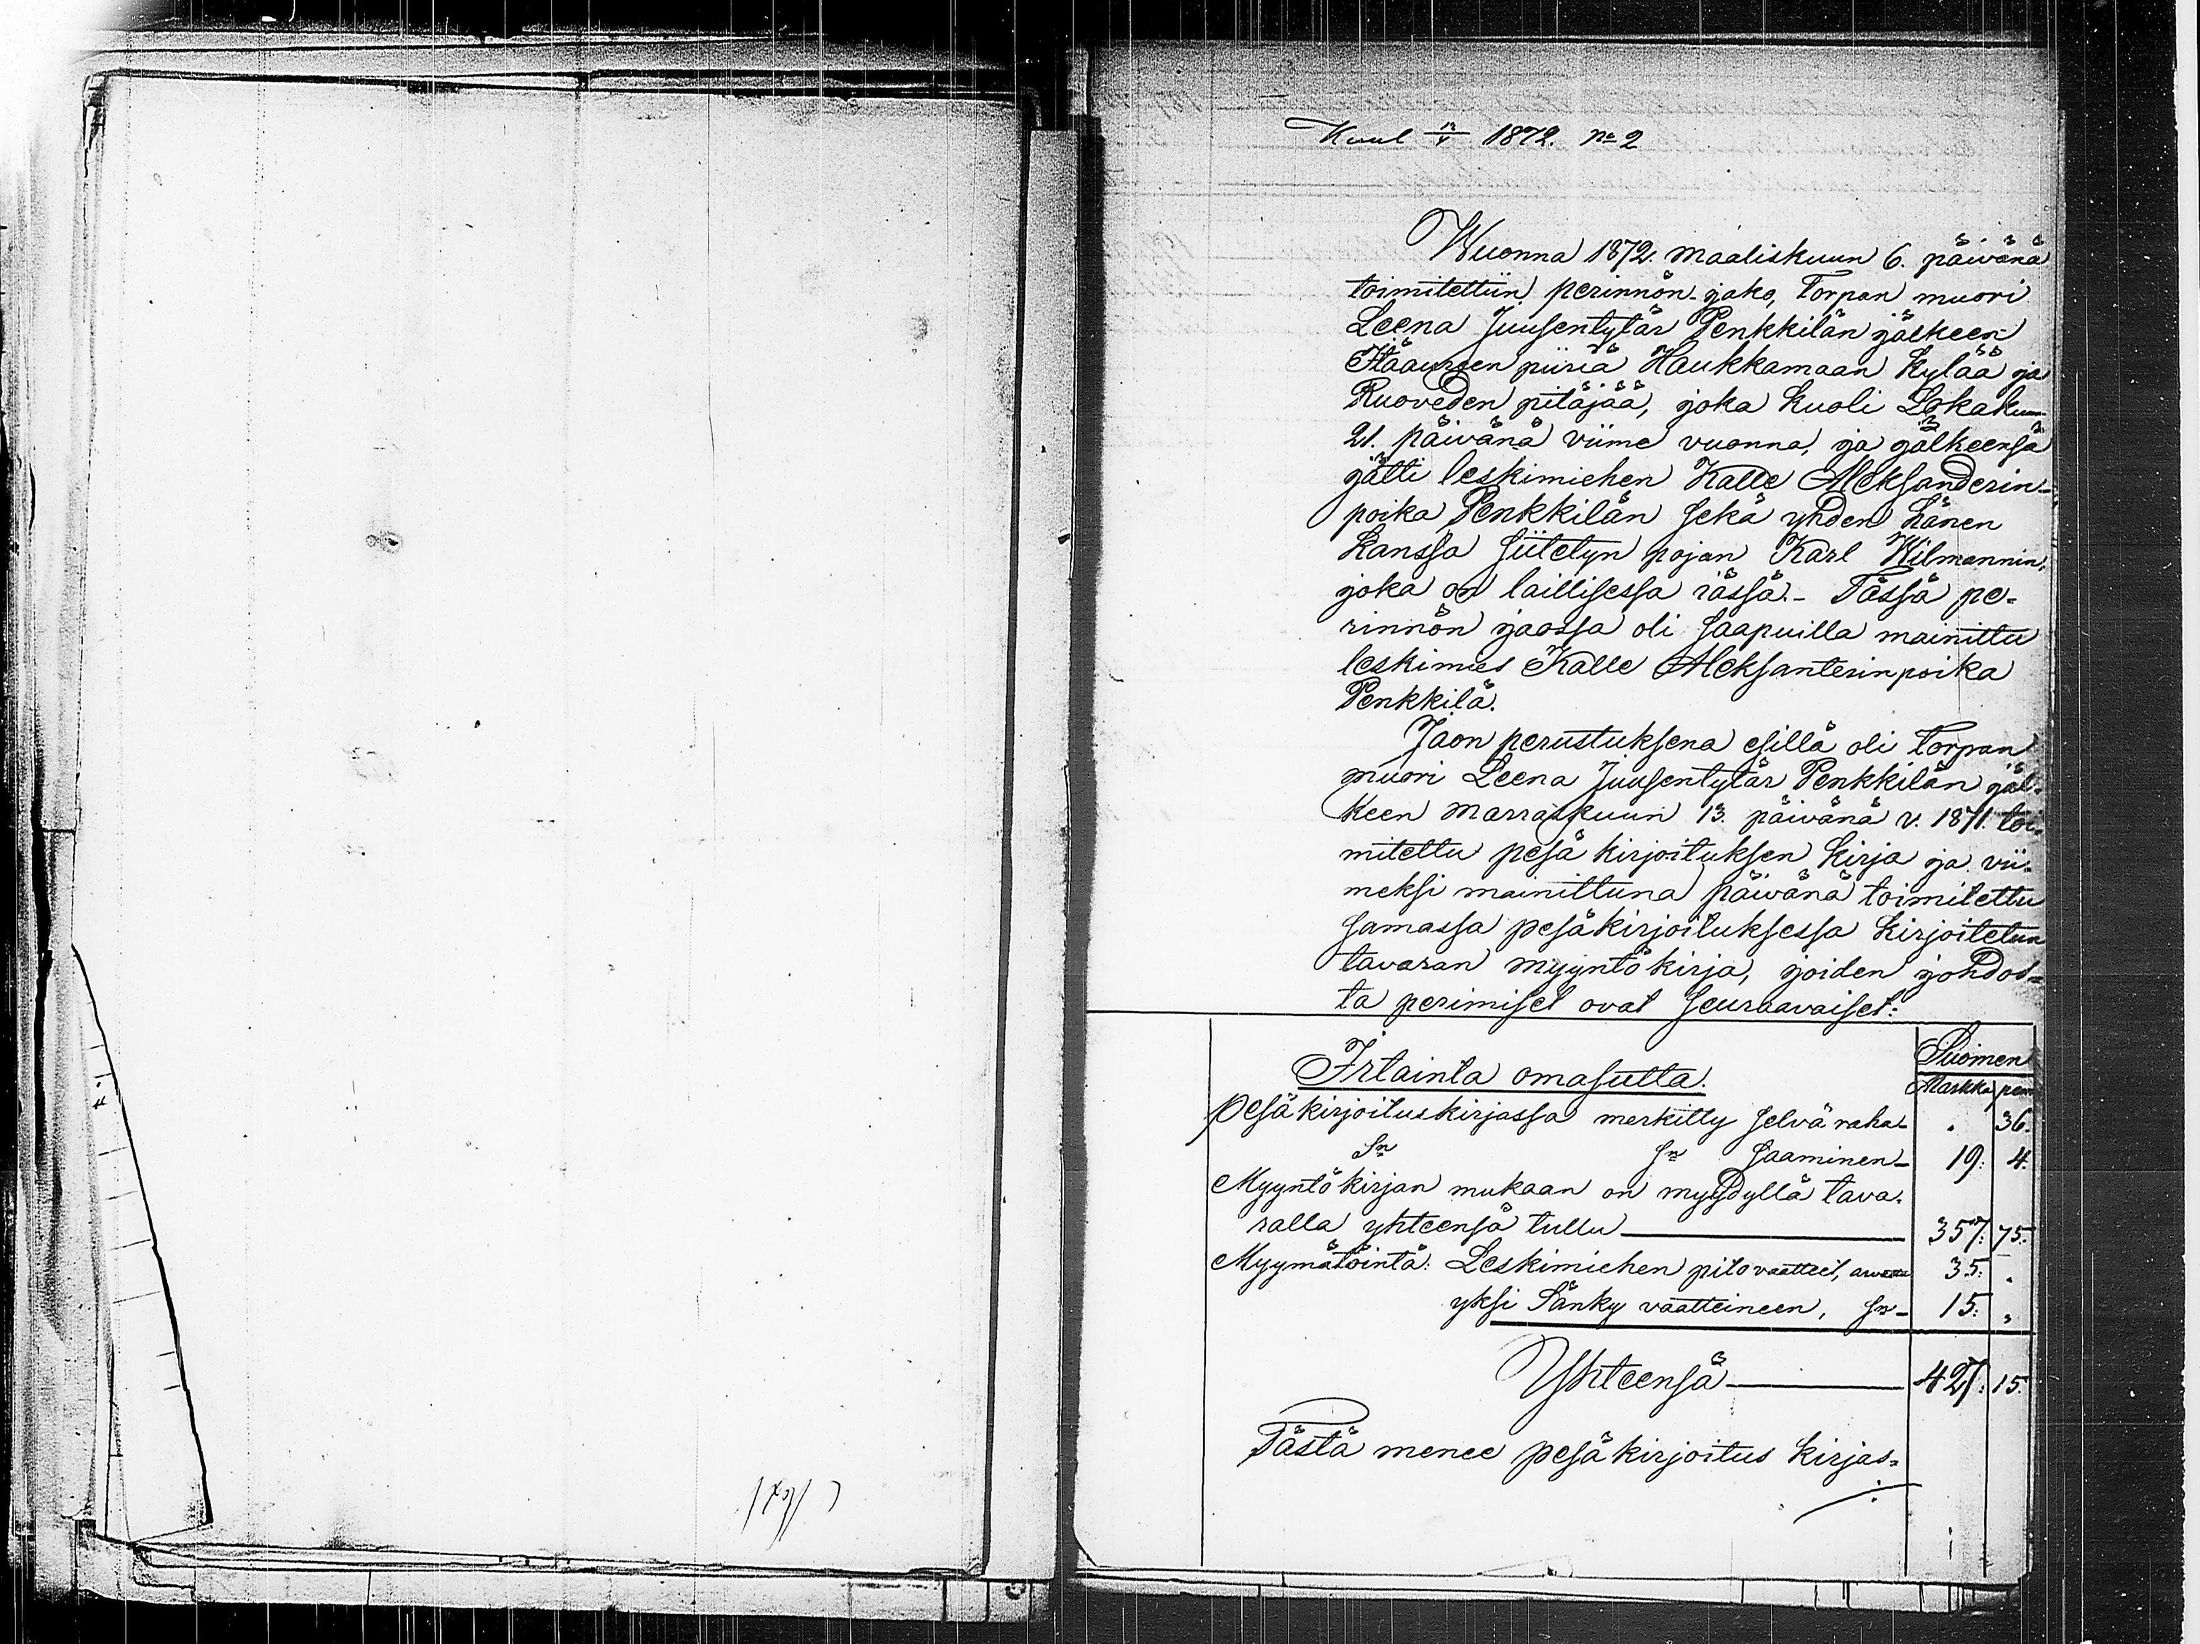 Kuul 12/V 1872. No 2
Wuonna 1872. Maaliskuun 6. päivänä
toimitettiin perinnön-jako, Torpan muori
Leena Juusentytär Penkkilän jälkeen
piiriä Haukkamaan kylää ja
Ruoveden pitäjää, joka kuoli Lokakuun
21. päivänä viime vuonna, ja jälkeensä
jätti leskimiehen Kalle Aleksanderin-
poika Penkkilän sekä yhden hänen
kanssa siitetyn pojan Karl Wilmannin,
joka on laillisessa iässä.- Tässä pe-
rinnön jaossa oli saapuilla mainittu
leskimies Kalle Aleksanterinpoika
Penkkilä.
Jaon perustuksena esillä oli Torpan
muori Leena Juusentytär Penkkilän jäl-
keen Marraskuun 13. päivänä v. 1871. toi-
mitettu pesä kirjoituksen kirja ja vii-
meksi mainittuna päivänä toimitettu
samassa pesäkirjoituksessa kirjoitetun
tavaran myyntö kirja, joiden johdos-
ta perimiset ovat seuraavaiset:
Irtainta omasutta.
Suomen
Markka pen
Pesäkirjoituskirjassa merkitty selvä raha- . 36.
Sn Sn saaminen- 19: 4.
Myyntö kirjan mukaan on myydyllä tava-
ralla yhteensä tullu 357: 75.
Myymätöintä: Leskimiehen pitovaatteet, 35: .
yksi Sänky vaatteineen, Sn- 15: ,
Yhteensä 427: 15.
Tästä menee pesäkirjoitus kirjas-